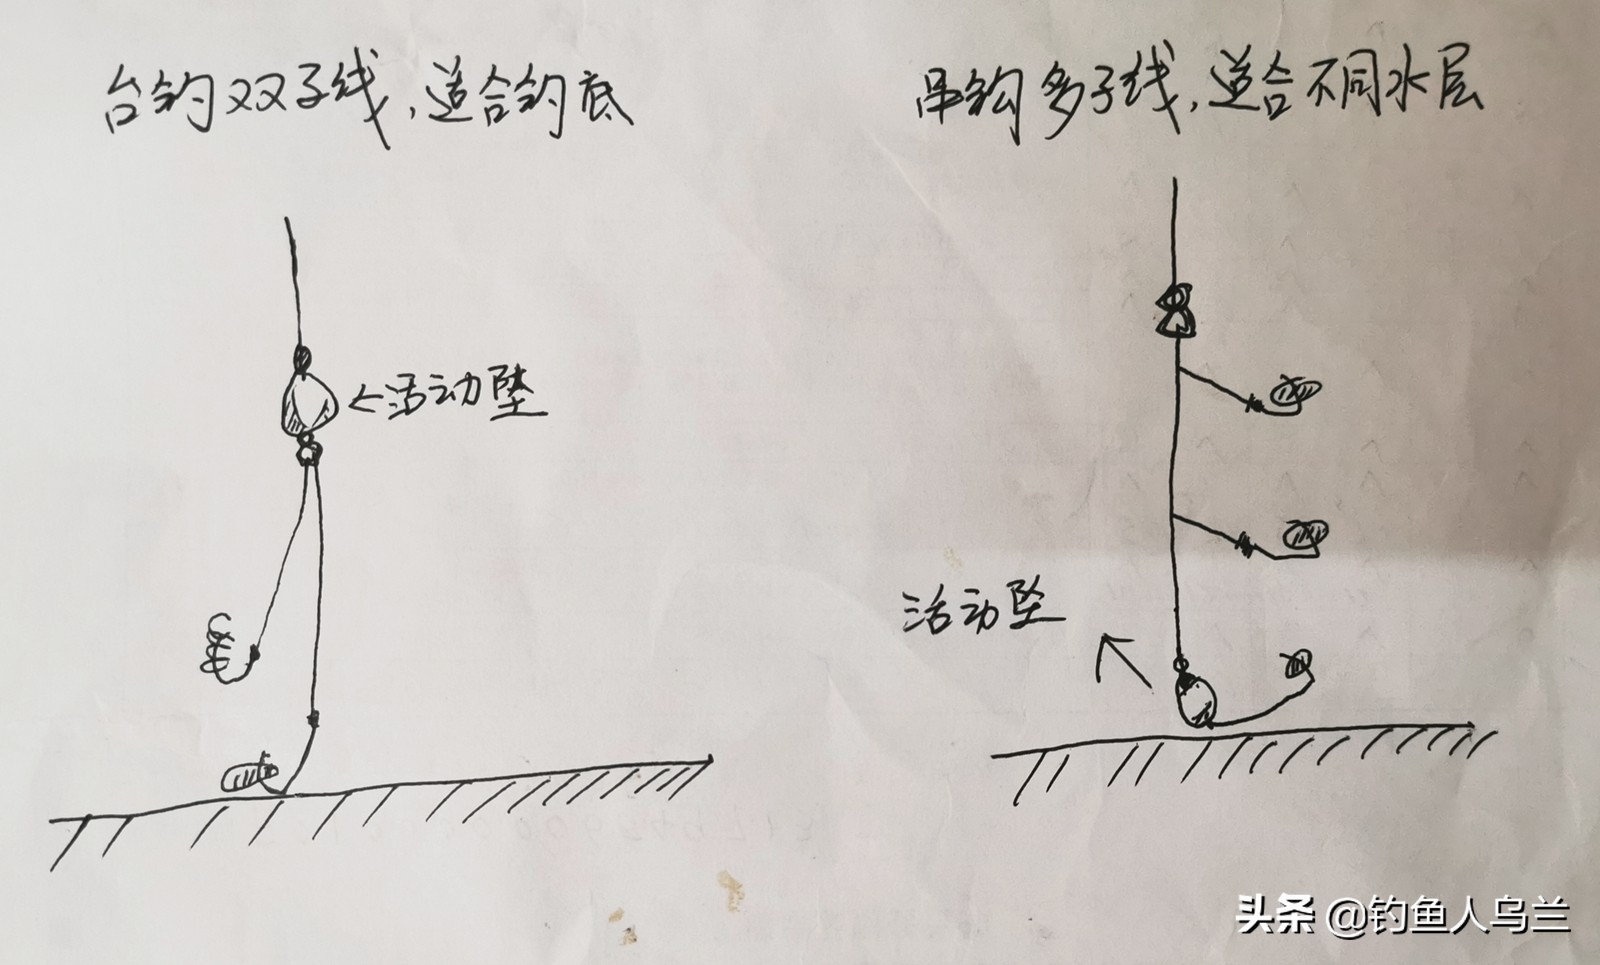 台钓双子线,适合钓底
串钩多子线,适合不同水层
←活动坠
活动坠
头条 @钓鱼人乌兰